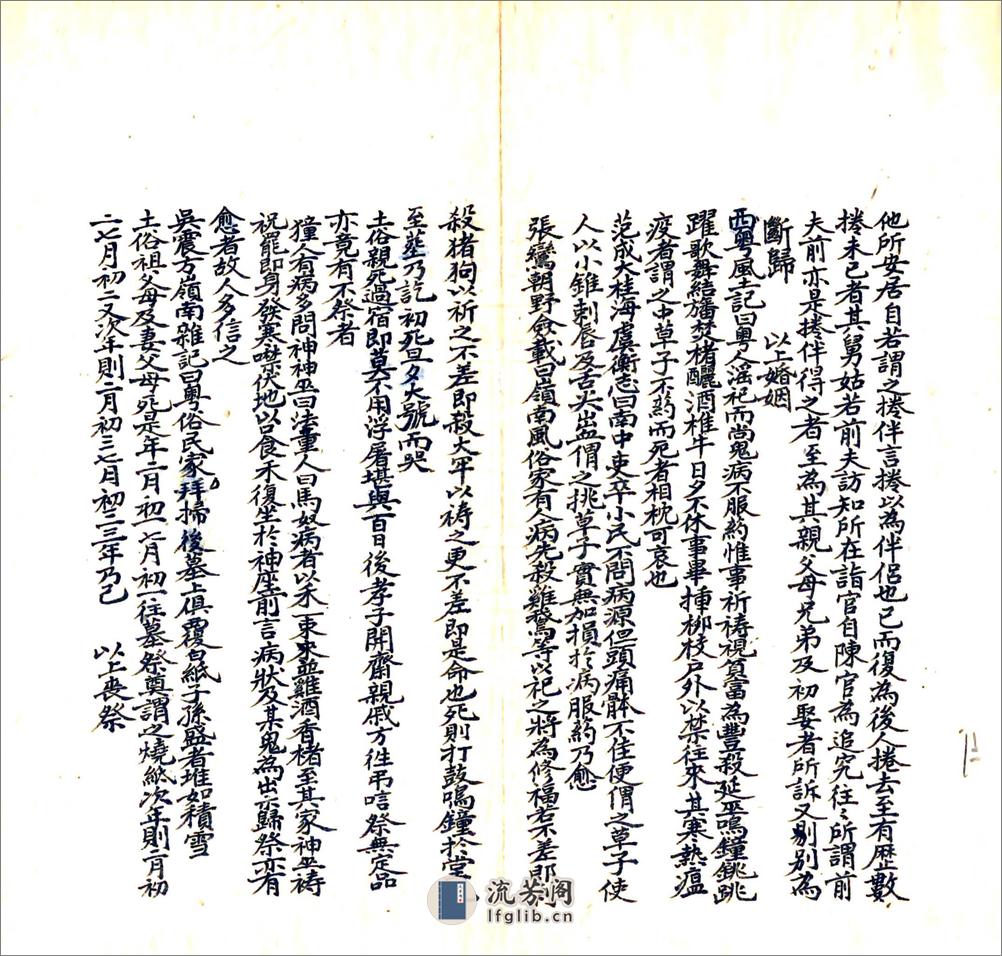 他所安居自若謂之捲伴言捲以為伴侶也已而復為後人捲去至有歷數
捲未已者其舅姑若前夫訪知所在詣官自陳官為追究往々所謂前
夫前亦是捲伴得之者至為其親父母兄弟及初娶者所訴又剔別為
斷歸　以上婚姻
西粵風土記曰粵人淫祀而尚鬼病不服药惟事祈祷視貧富為豐殺延巫鳴鐘銚跳
躍歌舞結旛焚楮釃酒椎牛日夕不休事畢揷柳枝户外以禁往來其寒熱瘟
疫者謂之中草子不药而死者相枕可哀也
范成大桂海虞衡志曰南中吏卒小民不問病源但頭痛体不佳便谓之草子使
人以小錐刺唇及舌尖出血谓之挑草子實無加損扵病服药乃愈
張鷟朝野僉載曰嶺南風俗家有人病先殺雞鵞等以祀之將為修福若不差即
殺猪狗以祈之不差即殺大牢以祷之更不差即是命也死則打鼓鳴鐘扵堂
至塟乃訖初死旦夕大號而哭
土俗親死過宿即莫不用浮屠堪輿百日後孝子開齋親戚方徃弔唁祭無定品
亦竟有不祭者
獞人有病多問神神巫曰法童人曰馬奴病者以禾一束米並雞酒香楮至其家神巫祷
祝罷即身發寒噤伏地以食禾復坐於神座前言病狀及其鬼為出示歸祭亦有
愈者故人多信之
吳震方嶺南雜記曰粵俗民家拜掃後墓上俱覆白紙子孫盛者堆如積雪
土俗祖父母及妻父母死是年二月初一七月初一往墓祭奠謂之燒紙次年則二月初
二七月初二又次年則二月初三七月初三三年乃已　以上喪祭
流芳阁
lfglib.cn